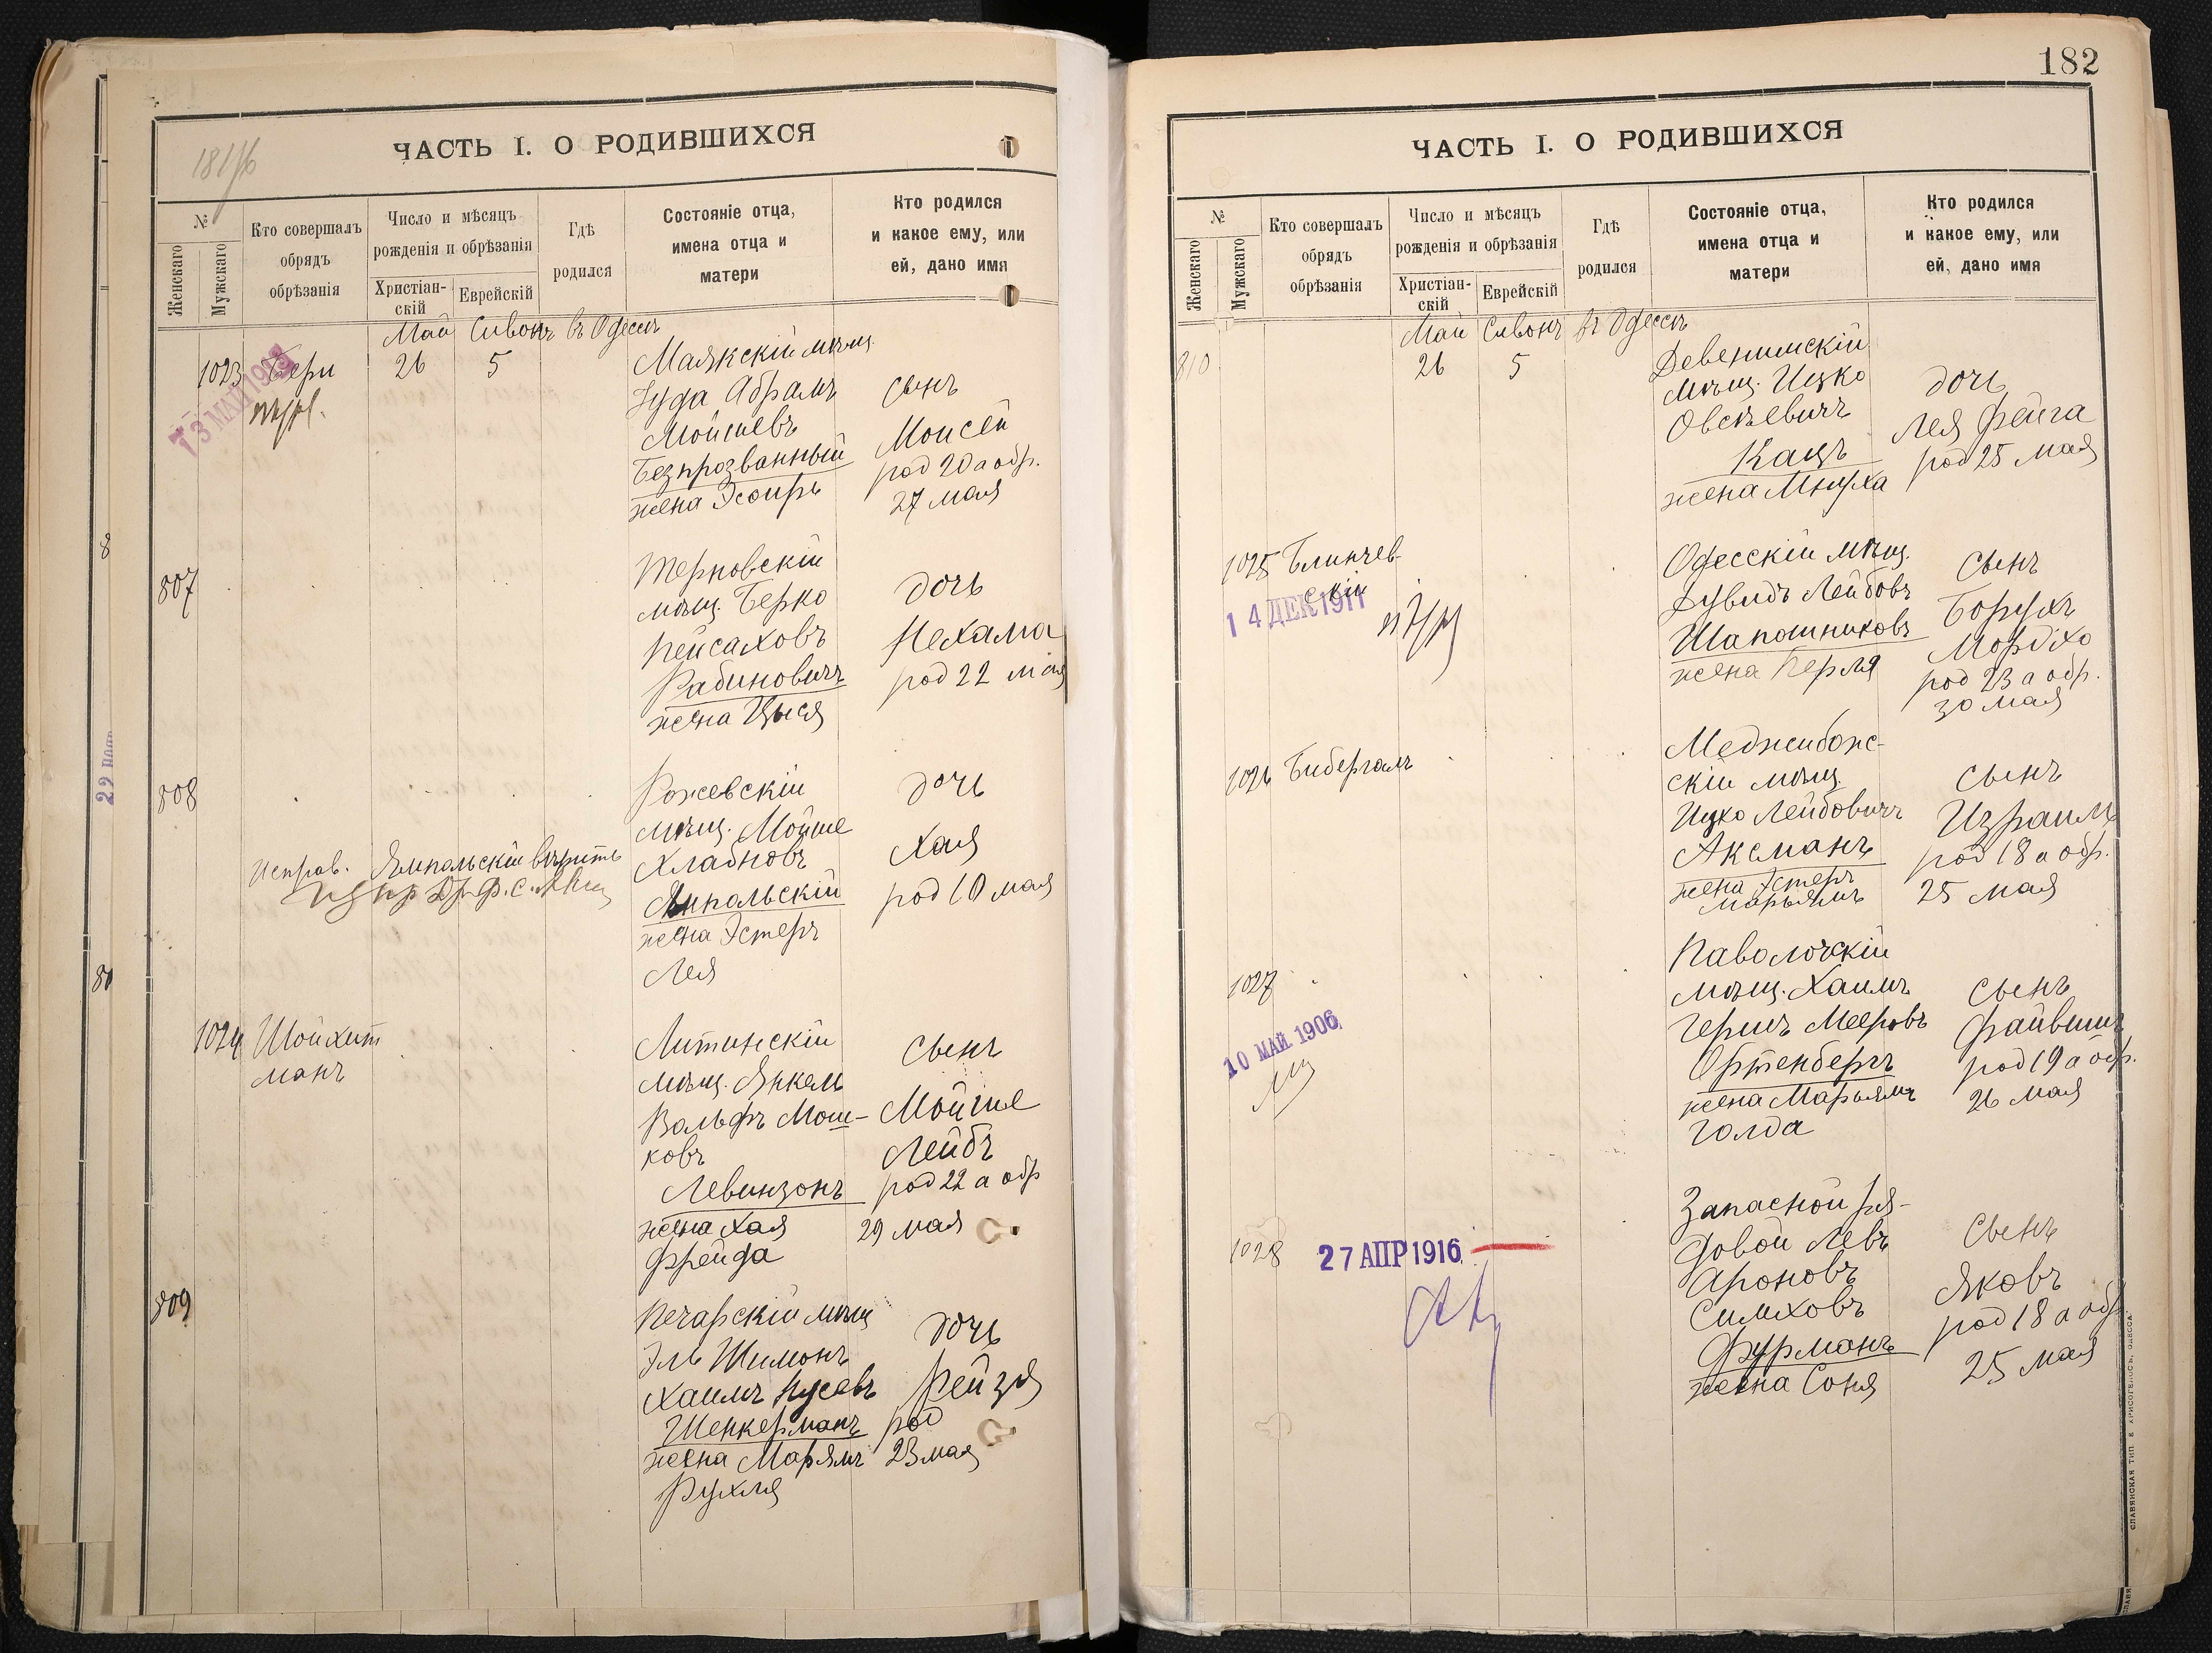 181/76
ЧАСТЬ I. О РОДИВШИХСЯ
№
Женскаго
Мужскаго
Кто совершалъ
обрядъ
обрѣзанія
Число и мѣсяцъ
рожденія и обрѣзанія
Христіан-
скій
Еврейскій
Гдѣ
родился
Состояніе отца,
имена отца и
матери
Кто родился
и какое ему, или
ей, дано имя
Май Сивонъ въ Одессѣ
1023
26 5
Маякскій мѣщ.
Іуда Абрамъ
Мойшевъ
Безпрозванный
жена Эсѳирь
сынъ
Моисей
род 20 а обр.
27 мая
807
Терновскій
мѣщ. Берко
Пейсаховъ
Рабиновичъ
жена Цыся
дочь
Нехама
род 22 мая
808
Исправ. Ямпольскій вѣрить
Рожевскій
мѣщ. Мойше
Хлавновъ
Ямпольскій
жена Эстеръ
Лея
дочь
Хая
род 10 мая
1024 Шойхит
манъ
Литинскій
мѣщ. Янкель
Вольфъ Мош-
ковъ
Левинзонъ
жена Хая
Фрейда
сынъ
Мойше
Лейбъ
род 22 а обр
29 мая
809
Печарскій мѣщ
Эль Шимонъ
Хаимъ Нусевъ
Шенкерманъ
жена Марьямъ
Рухля
дочь
Рейзя
род
23 мая
182
ЧАСТЬ I. О РОДИВШИХСЯ
№
Женскаго
Мужскаго
Кто совершалъ
обрядъ
обрѣзанія
Число и мѣсяцъ
рожденія и обрѣзанія
Христіан-
скій
Еврейскій
Гдѣ
родился
Состояніе отца,
имена отца и
матери
Кто родился
и какое ему, или
ей, дано имя
Май Сивонъ въ Одессѣ
810
26 5
Девенишскій
мѣщ. Ицко
Овсѣевичъ
Кацъ
жена Мнуха
дочь
Лея Фейга
род 25 мая
1025 Блинчев-
скій
14 ДЕК 1911
Одесскій мѣщ.
Дувидъ Лейбовъ
Шапошниковъ
жена Перля
сынъ
Борухъ
Мордко
род 23 а обр.
30 мая
1026 Бибергалъ
Меджибож-
скій мѣщ
Ицко Лейбовичъ
Аксманъ
жена Эстеръ
Марьямъ
сынъ
Израиль
род 18 а обр.
25 мая
1027
10 МАЙ 1906
Паволочскій
мѣщ. Хаимъ
Гершъ Мееровъ
Ортенбергъ
жена Марьямъ
Голда
сынъ
Файвишъ
род 19 а обр.
26 мая
1028
27 АПР 1916
Запасной ря-
довой Левъ
Ароновъ
Симховъ
Фурманъ
жена Соня
сынъ
Яковъ
род 18 а обр
25 мая
СЛАВЯНСКАЯ ТИП. Е. ХРИСОГЕЛОСЪ, ОДЕССА.